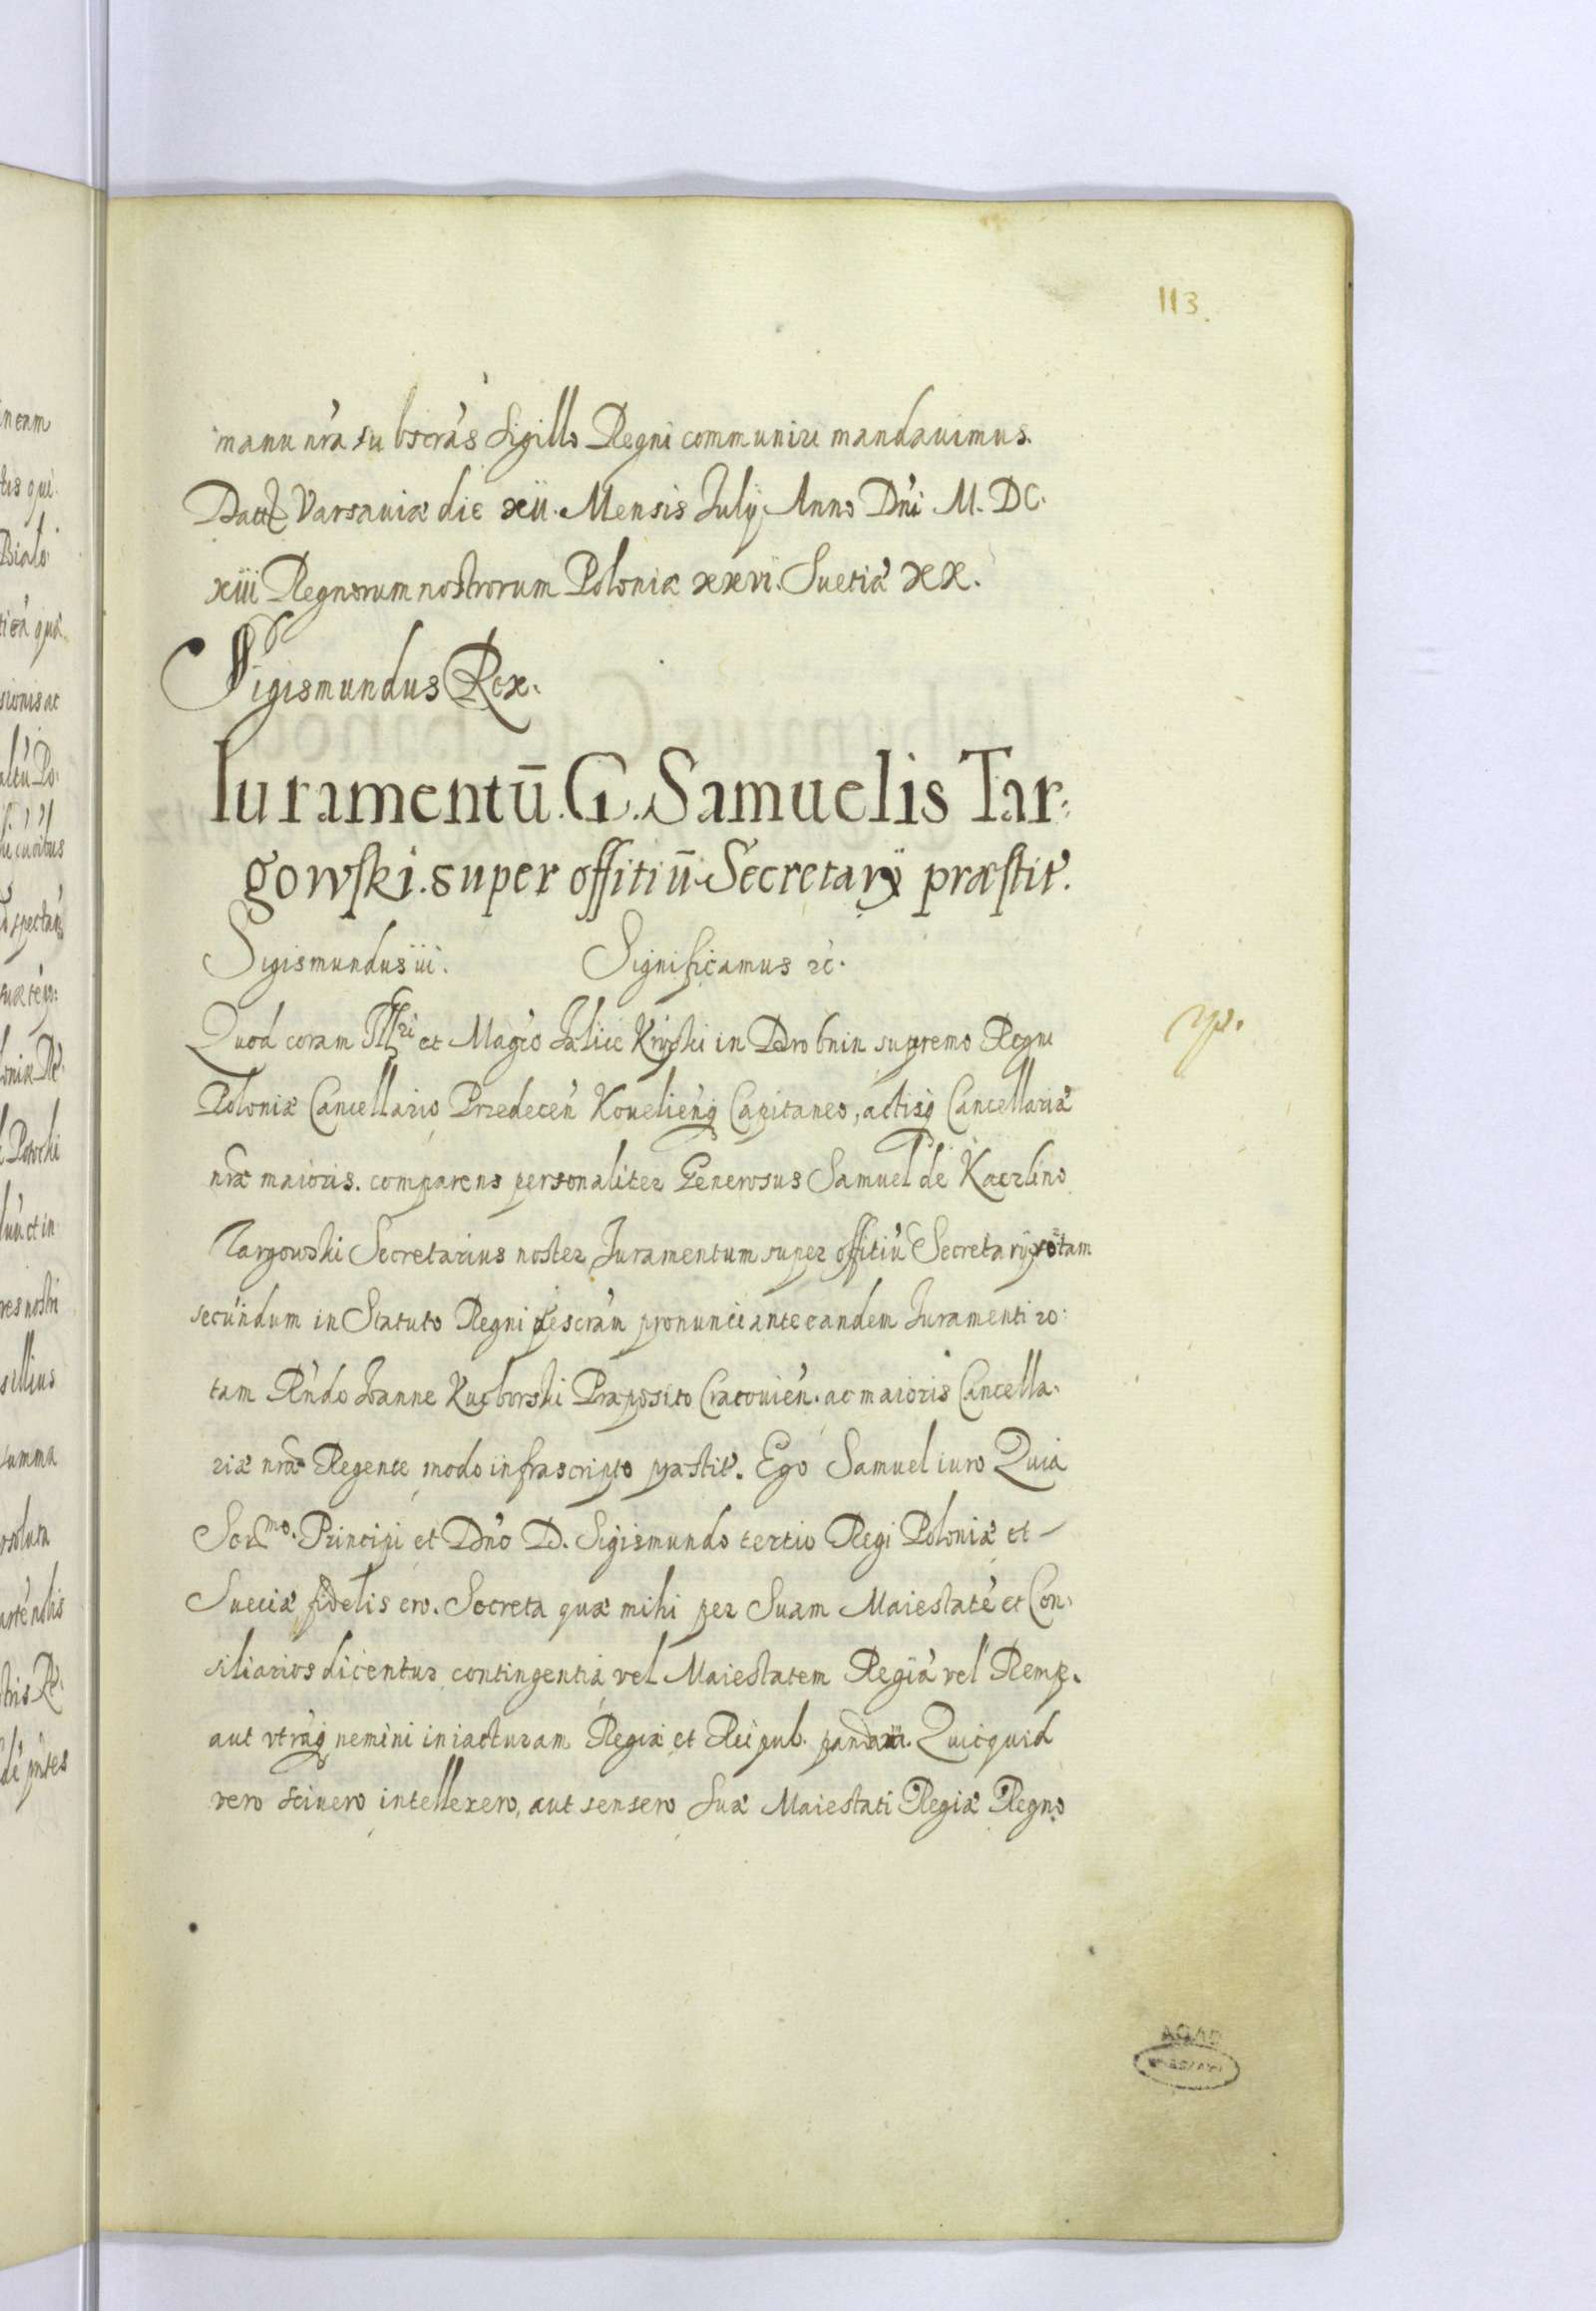 113.
manu nr̃a subscràs Sigillo Regni communire mandavimus.
Datt Varsaviæ die xii. Mensis Julÿ Anno Dn̓i M. DC.
xiii Regnorum nostrorum Poloniæ xxvi. Suetiæ XX.
Sigismundus Rex.
Iuramentū. G. Samuelis Tar:
gowski. super offitiū Secretarÿ præstit̓.
Sigismundus iii. Significamus &c.
Quod coram Illri et Magc̓o Felice Kryski in Drobnin supremo Regni
Poloniæ Cancellario Przedecen̓ Kovelien̓q Capitaneo, actisq Cancellariæ
nr̃æ maioris. comparens personaliter Generosus Samuel de
Targowski Secretarius noster Juramentum super offitiū Secretarÿ rotam
secundum in Statuto Regni descràm pronunciante eandem Juramenti ro:
tam Rn̓do Joanne Kucborski Præposito Cracovien̓. ac maioris Cancella:
riæ nr̃æ Regente modo infrascripto præstit̓. Ego Samuel iuro Quia
Sermo. Principi et Dn̓o D. Sigismundo tertio Regi Poloniæ et
Sueciæ fidelis ero. Secreta quæ mihi per Suam Maiestatē et Con:
siliarios dicentur contingentia vel Maiestatem Regiā vel Remp.
aut vtrāq nemini in iacturam Regiæ et Reipub. pandam. Quicquid
vero scivero intellexero, aut sensero Suæ Maiestati Regiæ Regno
AGAD
WARSZAWA